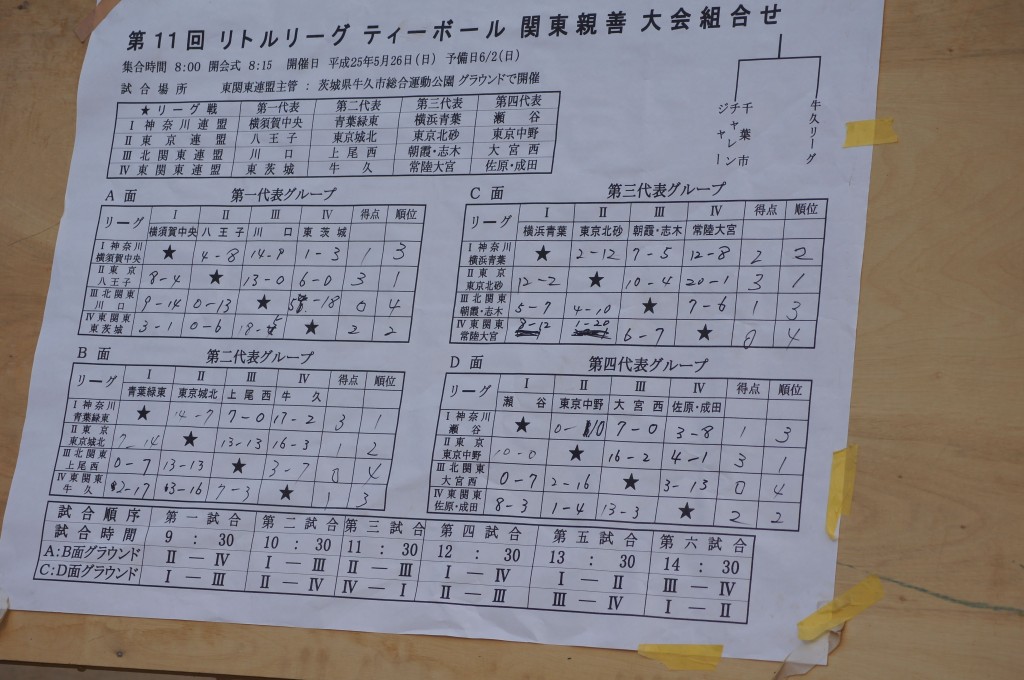 第11回 リトルリーグ ティーボール 関東親善 大会組合せ
集合時間 8:00 開会式 8:15 開催日 平成25年5月26日(日) 予備日6/2(日)
試合場所 東関東連盟主管: 茨城県牛久市総合運動公園 グラウンドで開催
千葉市
チャレン
ジャー
牛久リーグ
★リーグ戦 第一代表 第二代表 第三代表 第四代表
Ⅰ神奈川連盟 横須賀中央 青葉緑東 横浜青葉 瀬谷
Ⅱ東京連盟 八王子 東京城北 東京北砂 東京中野
Ⅲ北関東連盟 川口 上尾西 朝霞・志木 大宮西
Ⅳ東関東連盟 東茨城 牛久 常陸大宮 佐原・成田
A面 第一代表グループ
リーグ Ⅰ Ⅱ Ⅲ Ⅳ 得点 順位
横須賀中央 八王子 川口 東茨城
Ⅰ神奈川 横須賀中央 ★ 4-8 14-9 1-3 1 3
Ⅱ東京 八王子 8-4 ★ 13-0 6-0 3 1
Ⅲ北関東 川口 9-14 0-13 ★ -18 0 4
Ⅳ東関東 東茨城 3-1 0-6 18-5 ★ 2 2
B面 第二代表グループ
リーグ Ⅰ Ⅱ Ⅲ Ⅳ 得点 順位
青葉緑東 東京城北 上尾西 牛久
Ⅰ神奈川 青葉緑東 ★ 14-7 7-0 17-2 3 1
Ⅱ東京 東京城北 7-14 ★ 13-13 16-3 1 2
Ⅲ北関東 上尾西 0-7 13-13 ★ 3-7 0 4
Ⅳ東関東 牛久 2-17 3-16 7-3 ★ 1 3
C面 第三代表グループ
リーグ Ⅰ Ⅱ Ⅲ Ⅳ 得点 順位
横浜青葉 東京北砂 朝霞・志木 常陸大宮
Ⅰ神奈川 横浜青葉 ★ 2-12 7-5 12-8 2 2
Ⅱ東京 東京北砂 12-2 ★ 10-4 20-1 3 1
Ⅲ北関東 朝霞・志木 5-7 4-10 ★ 7-6 1 3
Ⅳ東関東 常陸大宮 8-12 1-20 6-7 ★ 0 4
D面 第四代表グループ
リーグ Ⅰ Ⅱ Ⅲ Ⅳ 得点 順位
瀬谷 東京中野 大宮西 佐原・成田
Ⅰ神奈川 瀬谷 ★ 0-10 7-0 3-8 1 3
Ⅱ東京 東京中野 10-0 ★ 16-2 4-1 3 1
Ⅲ北関東 大宮西 0-7 2-16 ★ 3-13 0 4
Ⅳ東関東 佐原・成田 8-3 1-4 13-3 ★ 2 2
試合順序 第一試合 第二試合 第三試合 第四試合 第五試合 第六試合
試合時間 9:30 10:30 11:30 12:30 13:30 14:30
A:B面グラウンド Ⅱ―Ⅳ Ⅰ―Ⅲ Ⅱ―Ⅲ Ⅰ―Ⅳ Ⅰ―Ⅱ Ⅲ―Ⅳ
C:D面グラウンド Ⅰ―Ⅲ Ⅱ―Ⅳ Ⅳ―Ⅰ Ⅱ―Ⅲ Ⅲ―Ⅳ Ⅰ―Ⅱ